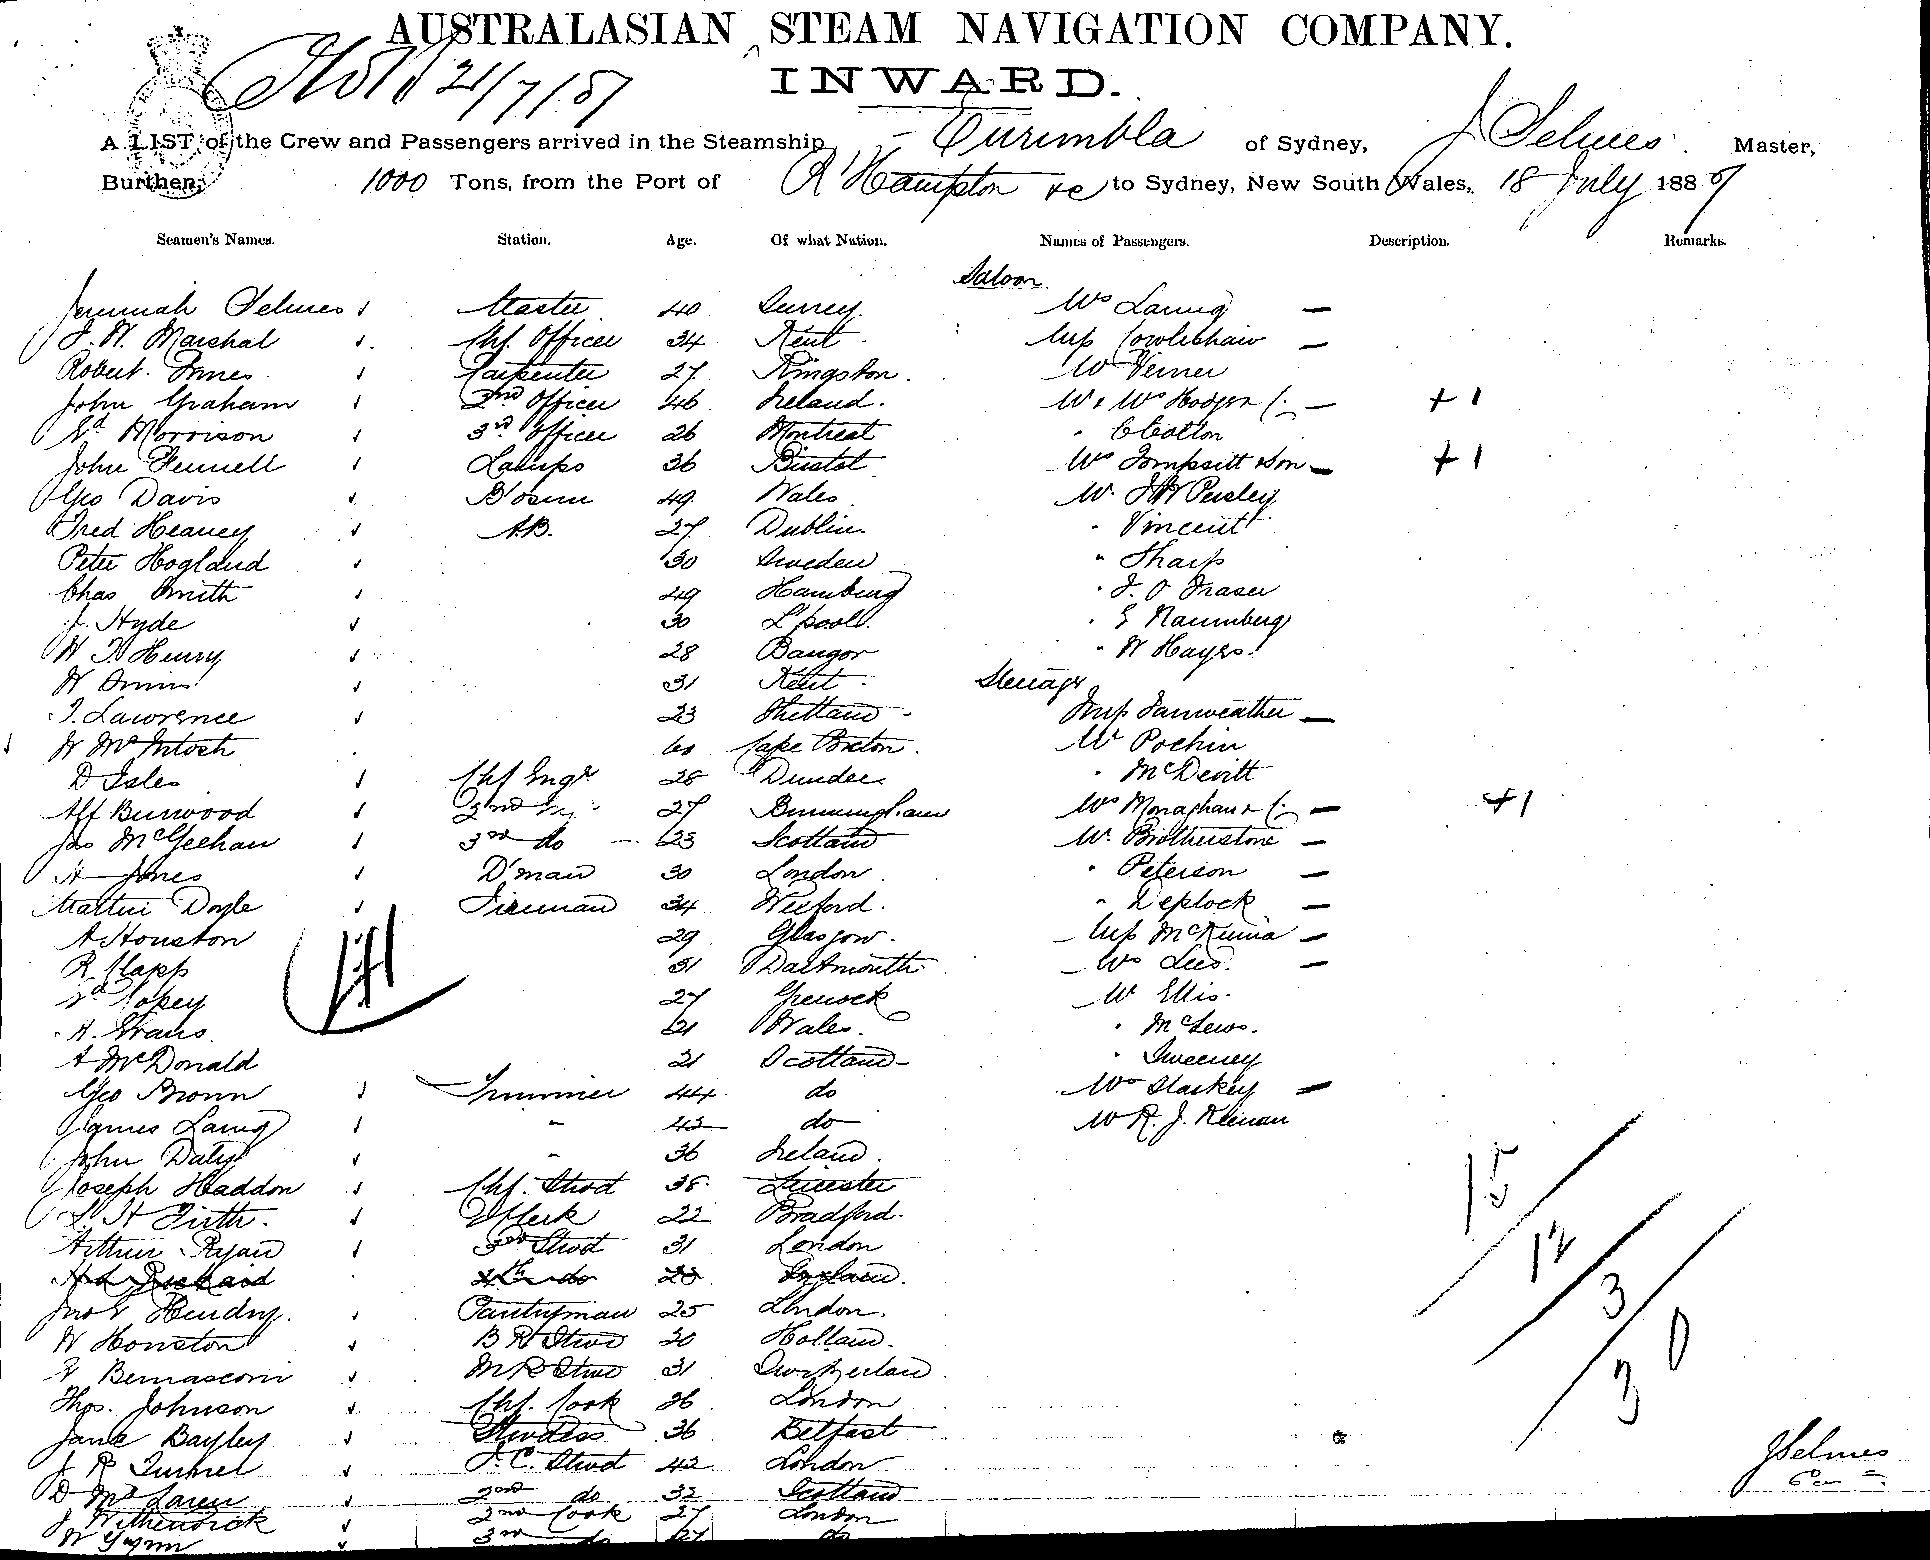 AUSTRALASIAN STEAM NAVIGATION COMPANY.
21/7/87
INWARD.
A LIST of the Crew and Passengers arrived in the Steamship Eurimbla of Sydney, J Selmes Master,
Burthen, 1000 Tons, from the Port of R'Hampton &c to Sydney, New South Wales, 18 July 1887
Seamen's Names. Station. Age. Of what Nation. Names of Passengers. Description. Remarks.
Saloon
Jeremiah Selmes Master 40 Surrey Mrs Laing —
J. W. Marshal Chf Officer 34 Kent Miss Cowlishaw —
Robert Innes Carpenter 27 Kingston Mr Verner
John Graham 2nd Officer 46 Ireland. Mr & Mrs — + 1
Wd Morrison 3rd Officer 26 Montreal " C Cotton
John Fennell Lamps 36 Bristol Mrs Tompsitt & Son — + 1
Geo Davis B'osun 49 Wales Mr. Persley
Fred Heaney A.B. 27 Dublin. " Vincent
Peter Hogland 30 Sweden " Sharp
Chas Smith 49 Hamburg " J. O Fraser
J. Hyde 30 L'pool. " E Naumberg
W. Henry 28 Bangor " W Hayes
W 31 Kent
Steerage
J. Lawrence 23 Shetland Miss Fairweather —
W McIntosh 60 Cape Breton Mr Pochin
D Isles Chf Engr 28 Dundee " McDevitt
Alf Burwood 2nd 27 Birmingham Mrs Monaghan & — + 1
Jas McGeehan 3rd do 23 Scotland Mr. Brotherstone —
H Jones D'man 30 London " Peterson —
Martin Doyle Fireman 34 Wexford. " Deplock —
A Houston 29 Glasgow. Miss —
R. Clapp 31 Dartmouth Mrs Lees. —
27 Greenock Mr Ellis.
A. Evans 21 Wales. "
A McDonald 21 Scotland " Sweeney
Geo Brown Trimmer 44 do Mrs Starkey —
James Laing " 43 do Mr R. J. Keenan
John Daly " 36 Ireland.
Joseph Haddon Chf. Stwd 38 Leicester
H Firth. Clerk 22 Bradford.
Arthur Ryan 3rd Stwd 31 London
4th do
Hendry. Pantryman 25 London.
W Houston B R Stwd 30 Holland.
Bernasconi M R Stwd 31 Switzerland
Thos. Johnson Chf. Cook 26 London
Jane Bayley Stwdess 36 Belfast
J R Turner F. C. Stwd 42 London
D McLaren 2nd do 32 Scotland
J Witherdick 2nd Cook 27 London
W Gynn 3rd do 27 do
15
12
3
30
J Selmes